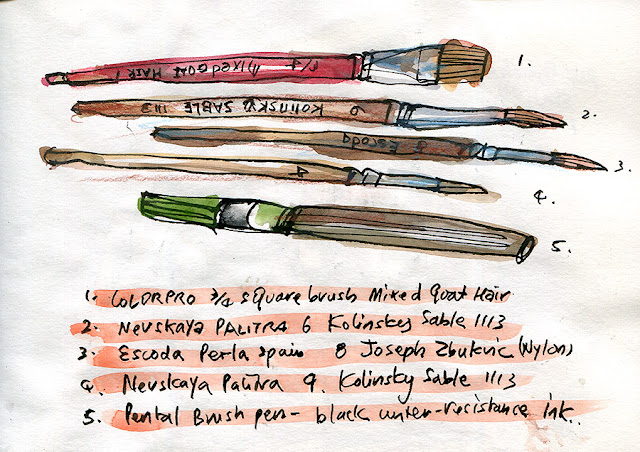 3/4 Mixed GOAT HAIR
1.
6 KOLINSKY SABLE 1113
2.
8 Escoda
3.
4
4.
5.
1. COLORPRO 3/4 square brush Mixed Goat Hair
2. Nevskaya PALITRA 6 Kolinskey Sable 1113
3. Escoda Perla Spain 8 Joseph Zbukvic (Nylon)
4. Nevskaya Palitra 4. Kolinsky Sable 1113
5. Pental Brush pen - black water-resistance ink..